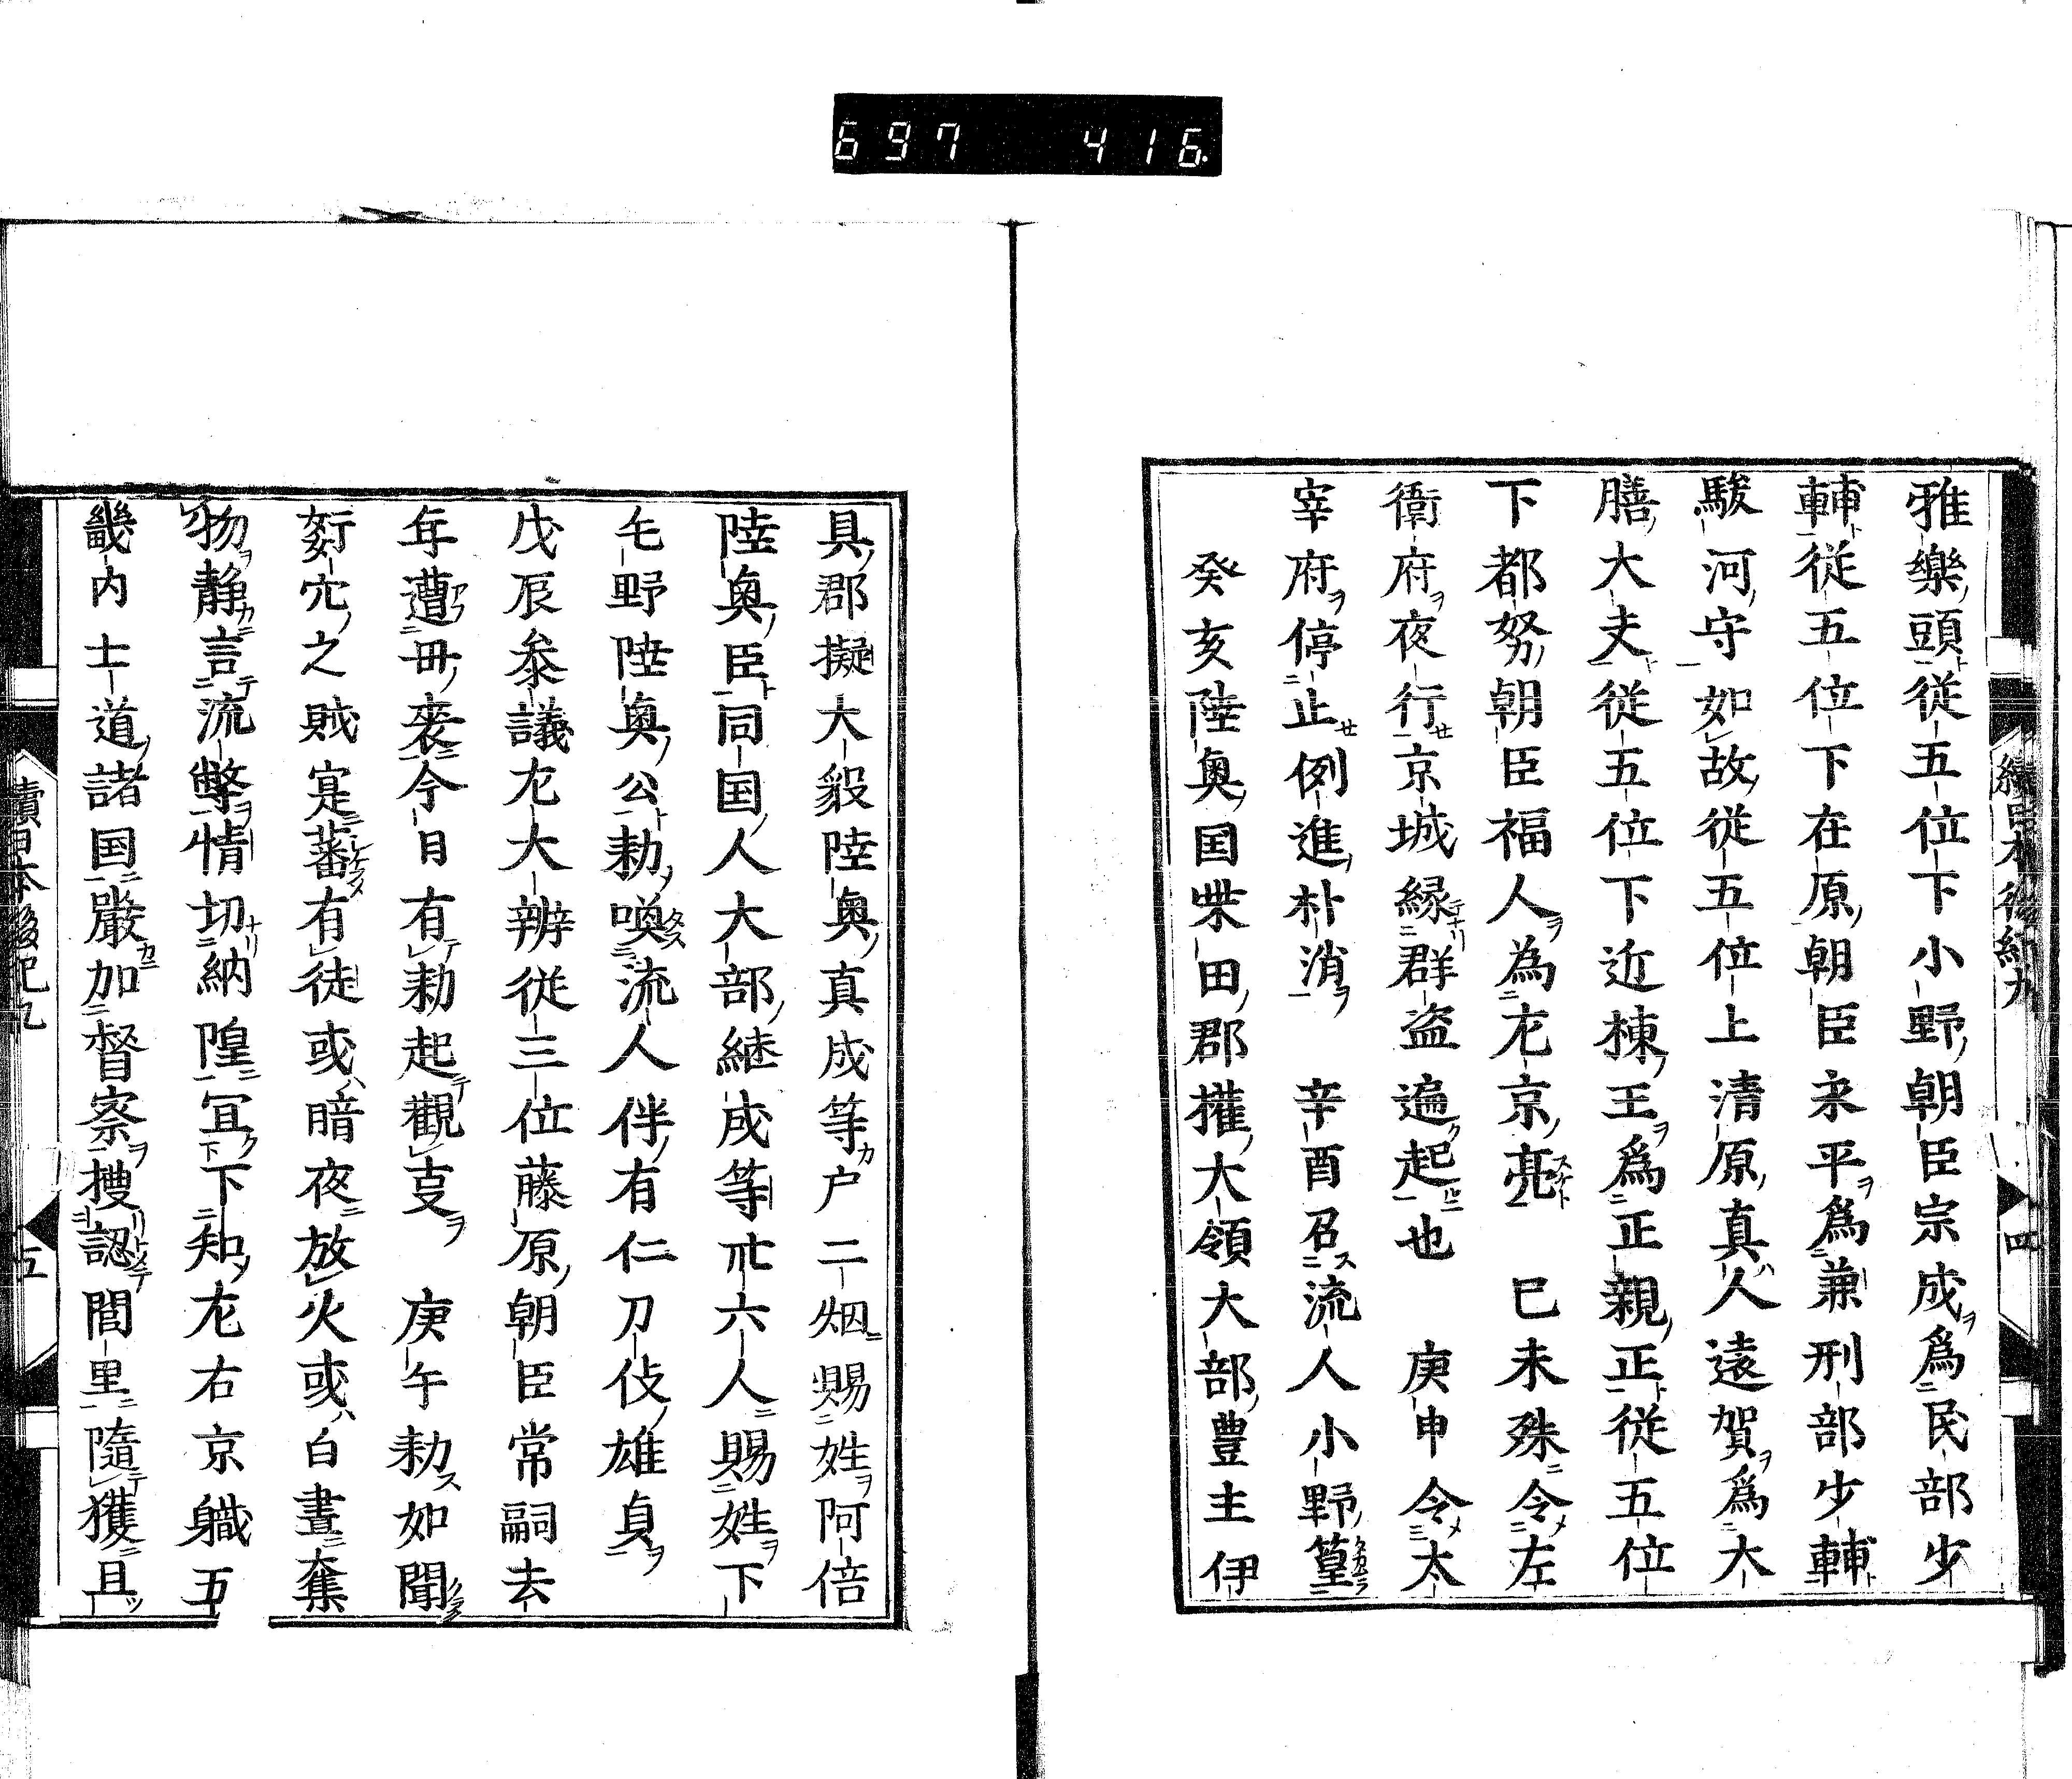 697 416.
續日本後紀九
四
雅樂頭從五位下小野朝臣宗成爲民部少
輔從五位下在原朝臣永平爲兼刑部少輔
駿河守如故從五位上清原真人遠賀爲大
膳大夫從五位下近棟王爲正親正從五位
下都努朝臣福人為尤京亮 巳未殊令左
衛府夜行京城縁群盗遍起也 庚申令太
宰府停止例進朴消 辛酉召流人小野篁
癸亥陸奥国柴田郡擬大領大部豊主伊
具郡擬大毅陸奥真成等户二烟賜姓阿倍
陸奥臣同国人大部継成等卅六人賜姓下
毛野陸奥公勅喚流人伴有仁刀伎雄貞
戊辰叅議尤大辨從三位藤原朝臣常嗣去
年遭母喪今日有勅起觀㕝 庚午勅如聞
姧宄之賊寔蕃有徒或暗夜放火或白晝奪
物静言流弊情切納隍冝下知尤右京職五
畿内七道諸国嚴加督察搜認閭里隨獲且
續日本後紀九
五